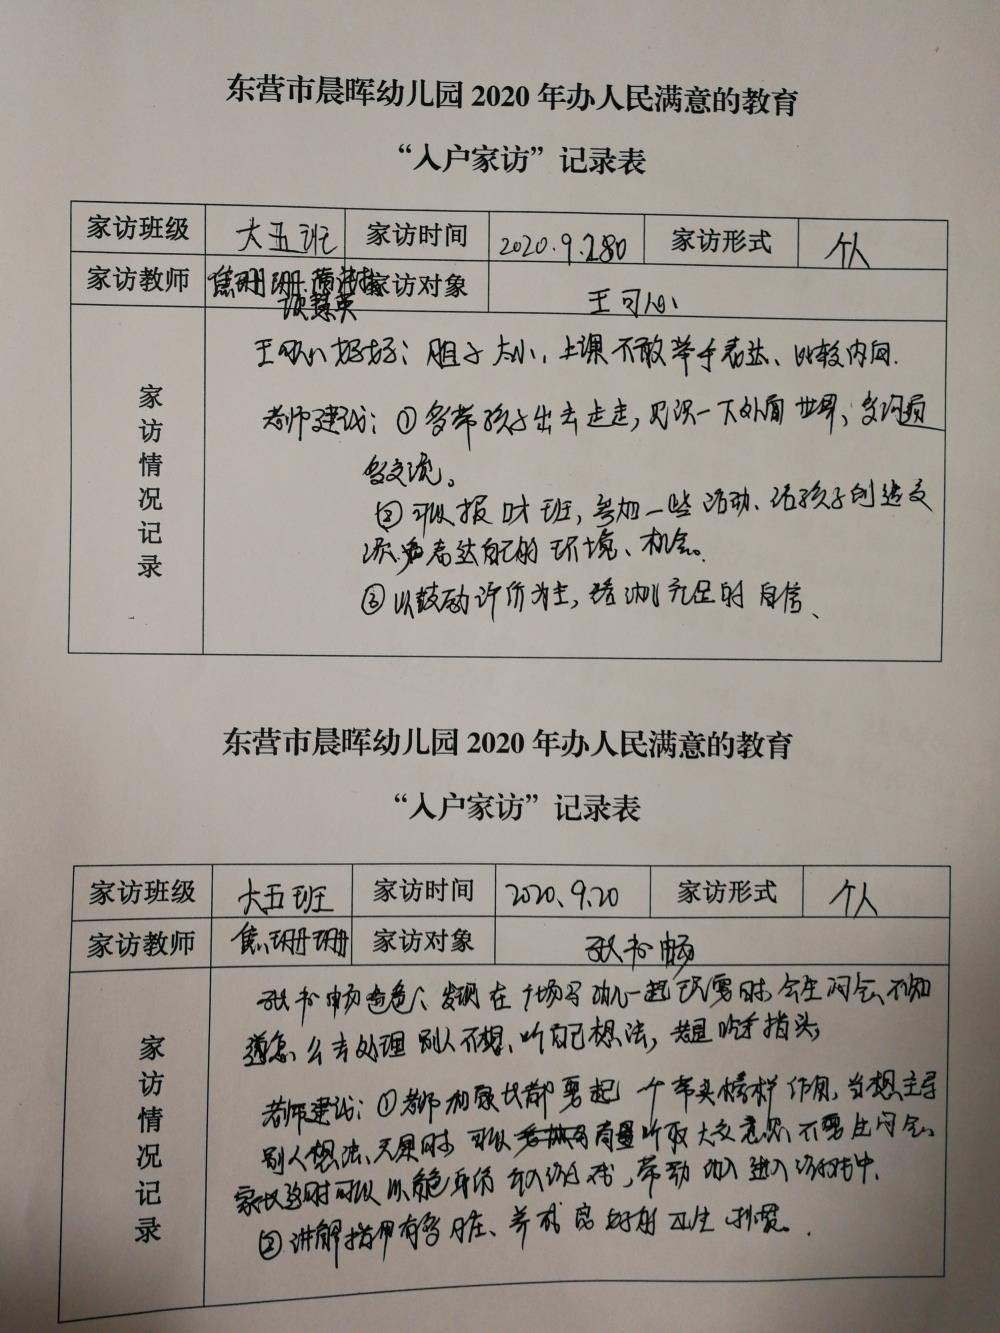 东营市晨晖幼儿园 2020 年办人民满意的教育
“入户家访”记录表
家访班级 大五班 家访时间 2020.9.180 家访形式 个人
家访教师 焦珊珊 家访对象 王可心
家访情况记录
妈妈：胆子太小，上课不敢举手表达、比较内向.
老师建议：①多带孩子出去走走，见识一下外面世界，多沟通
多交流。
②可以报 班，参加一些活动、给孩子创造交
流 表达自己的环境、机会。
③以鼓励评价为主，给 充足的自信、
东营市晨晖幼儿园 2020 年办人民满意的教育
“入户家访”记录表
家访班级 大五班 家访时间 2020、9.20 家访形式 个人
家访教师 焦珊珊 家访对象 张书畅
家访情况记录
张书畅爸爸：发现在 一起玩耍时会生闷气、不知
道怎么去处理别人不想、听自己想法，老是吃手指头，
老师建议：①老师和家长都要起一个带头榜样作用，当想主导
别人想法、 时可以 听取大家意见不要生闷气。
家长这时可以以角色身份 ，带动 进入游戏中.
②讲解指甲有 、养成良好的卫生习惯。